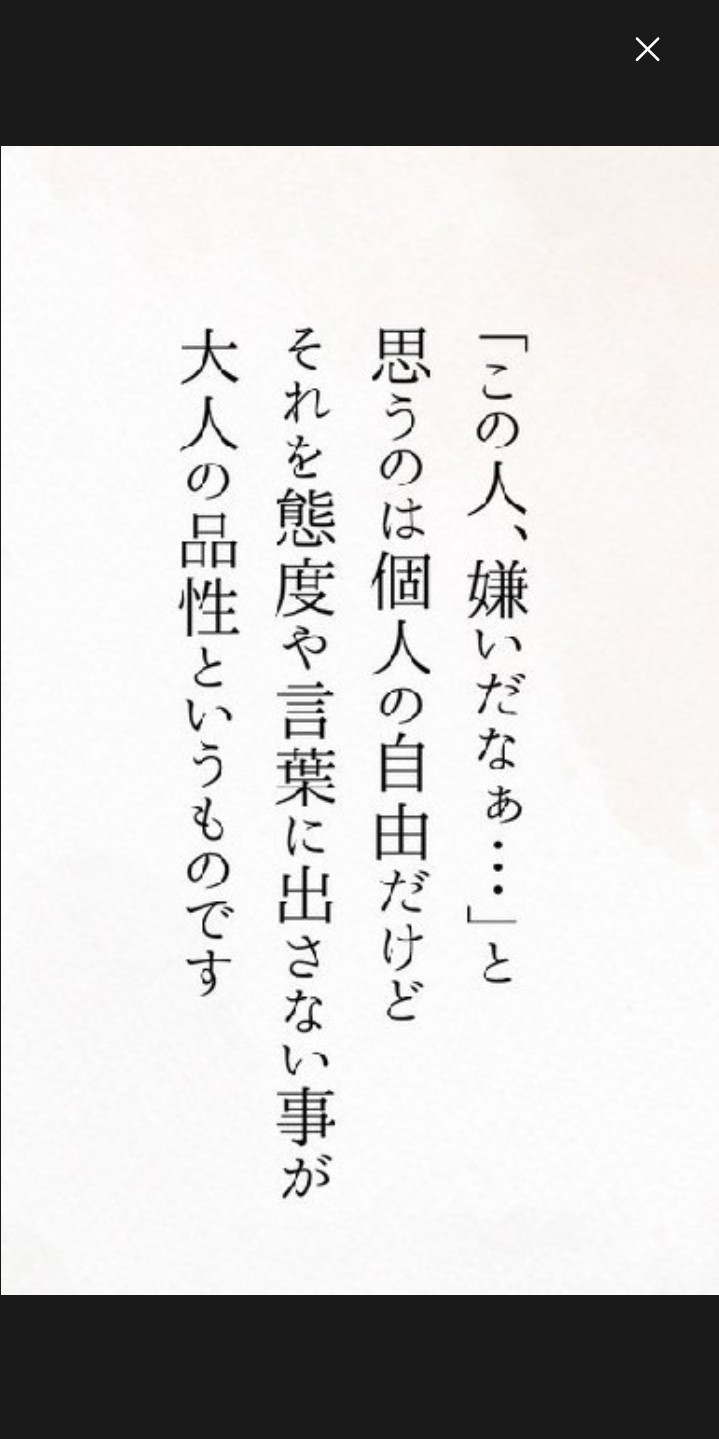 「この人、嫌いだなぁ…」と
思うのは個人の自由だけど
それを態度や言葉に出さない事が
大人の品性というものです